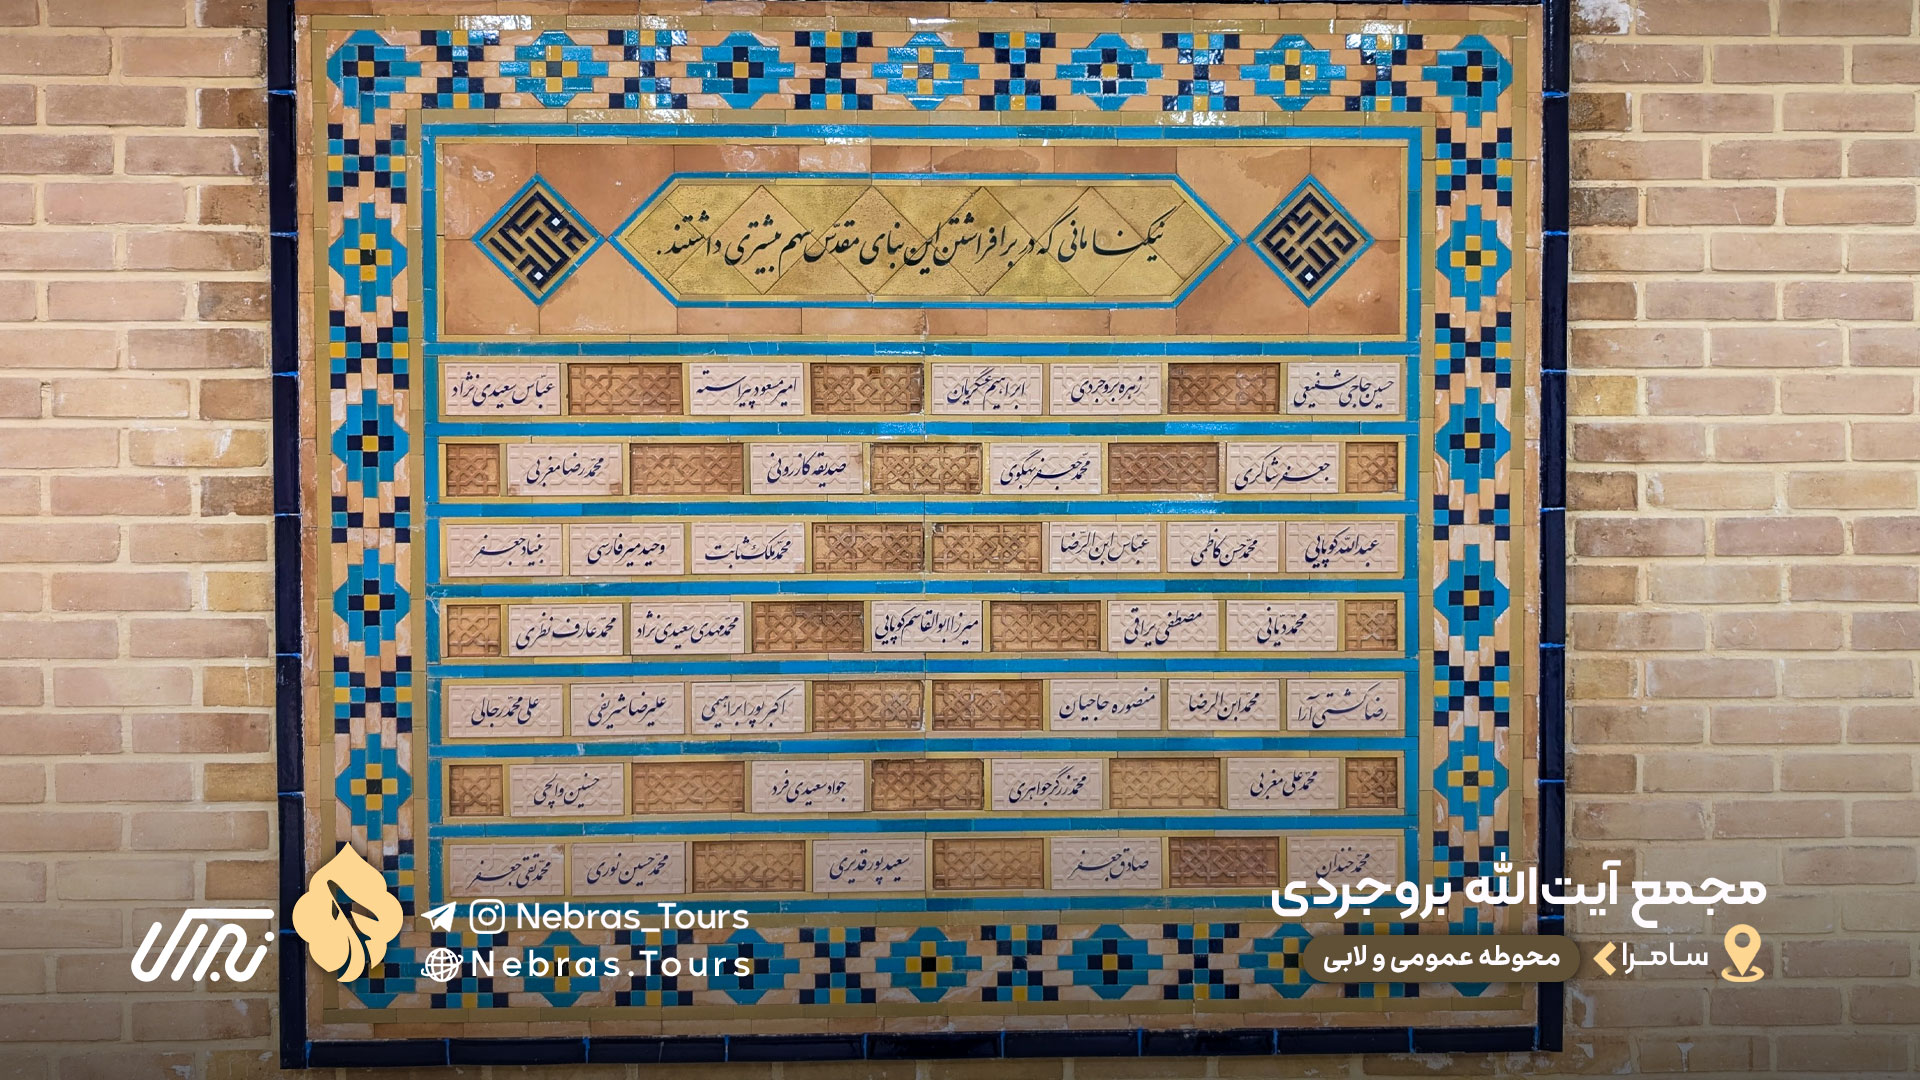 نیکنامانی که در برافراشتن این بنای مقدّس سهم بیشتری داشتند.
حسین حاجی شفیعی زهره بروجردی ابراهیم عسگریان امیر مسعود پیراسته عبّاس سعیدی نژاد
جعفر شاکری محمّد جعفر بهگوی صدیقه کازرونی محمّد رضا مغربی
عبدالله کوپایی محمّد حسن کاظمی عبّاس ابن الرّضا محمّد ملک ثابت وحید میر فارسی بنیاد جعفر
محمّد دیّانی مصطفی یراقی میرزا ابوالقاسم کوپایی محمّد مهدی سعیدی نژاد محمّد عارف نظری
رضا کشتی آرا محمّد ابن الرضا منصوره حاجیان اکبر پور ابراهیمی علیرضا شریفی علی محمّد رجالی
محمّد علی مغربی محمّد زرگر جواهری جواد سعیدی فرد حسنین والجی
محمّد خندان صادق جعفر سعید پور قدیری محمّد حسین نوری محمّد تقی جعفر
مجمع آیت‌الله بروجردی
سامرا
محوطه عمومی و لابی
نبراس
Nebras_Tours
Nebras.Tours